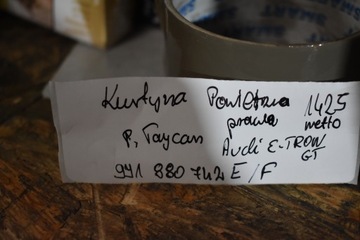 Kurtyna Powietrzna 1425
prawa netto
P. Taycan Audi E-TRON
GT
9J1 880 742 E/F